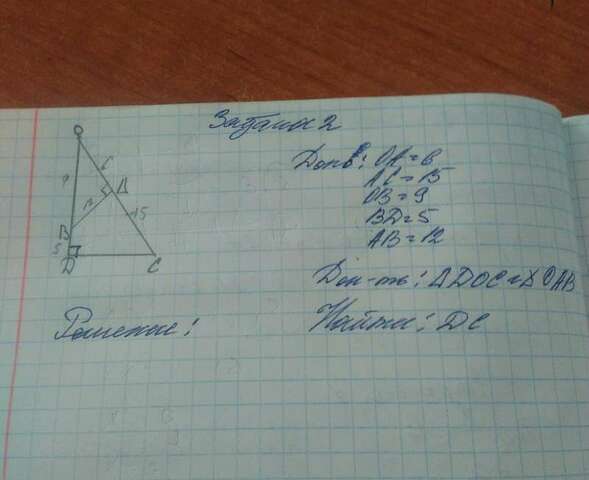 Задача 2
O
6
A
9
12
15
B
5
D
C
Дано: OA=6
AC=15
OB=9
BD=5
AB=12
Док-ть: ΔDOC ∾ ΔOAB
Решение:
Найти: DC